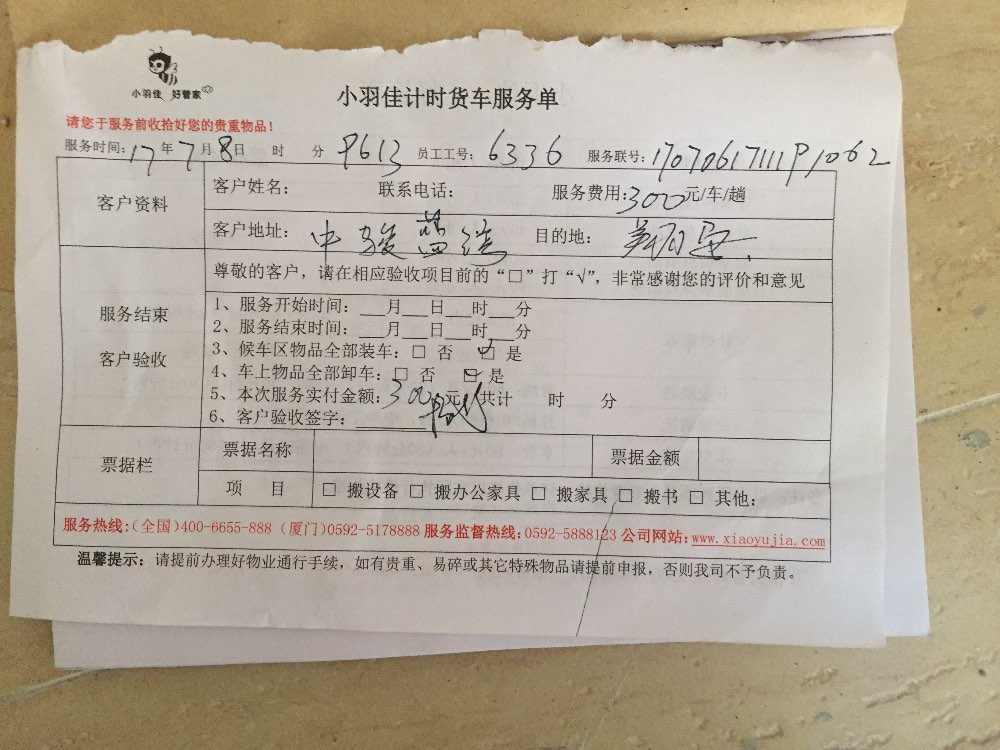 小羽佳 好管家
小羽佳计时货车服务单
请您于服务前收拾好您的贵重物品！
服务时间：17年7月8日 时 分 9613 员工工号：6336 服务联号：
客户资料
客户姓名： 联系电话： 服务费用：300元/车/趟
客户地址：中骏蓝湾 目的地：
尊敬的客户，请在相应验收项目前的“□”打“√”，非常感谢您的评价和意见
服务结束
客户验收
1、服务开始时间：___月___日___时___分
2、服务结束时间：___月___日___时___分
3、候车区物品全部装车：□ 否 ☑ 是
4、车上物品全部卸车：□ 否 ☑ 是
5、本次服务实付金额：300元 共计 时 分
6、客户验收签字：
票据栏
票据名称 票据金额
项 目 □ 搬设备 □ 搬办公家具 □ 搬家具 □ 搬书 □ 其他：
服务热线：（全国）400-6655-888（厦门）0592-5178888 服务监督热线：0592-5888123 公司网站：www.xiaoyujia.com
温馨提示：请提前办理好物业通行手续，如有贵重、易碎或其它特殊物品请提前申报，否则我司不予负责。